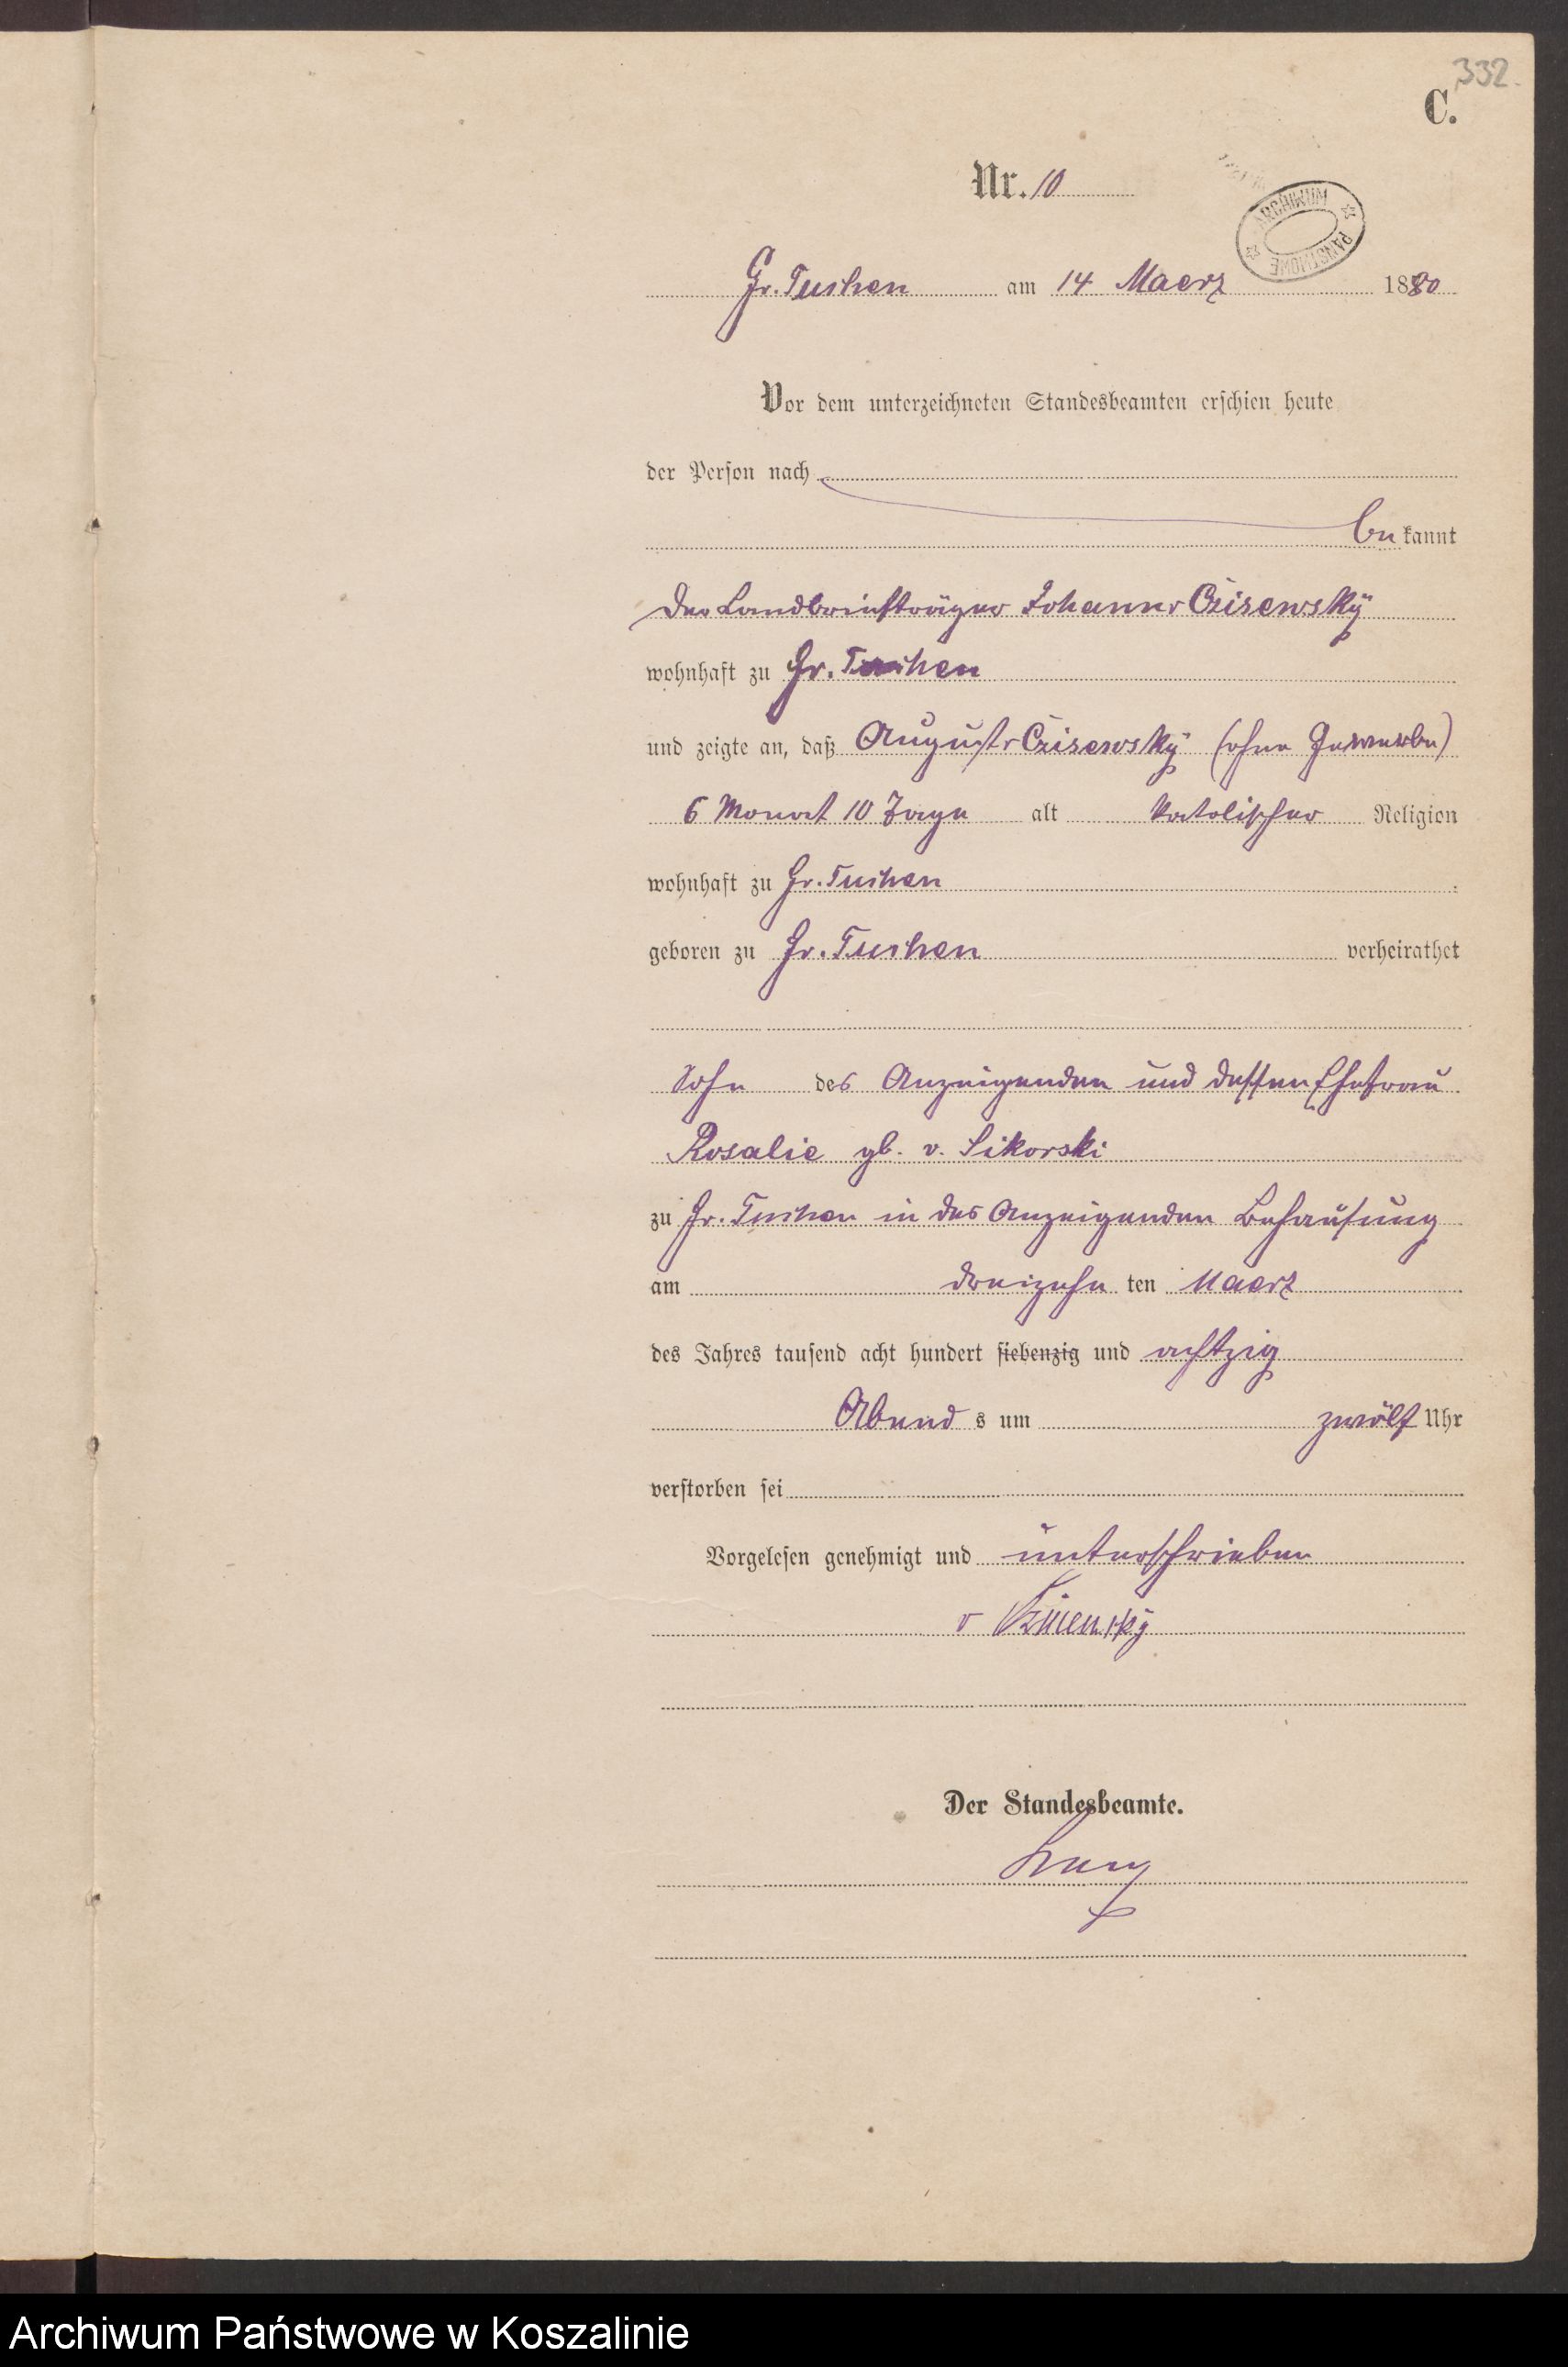 332.
C.
Nr. 10
ARCHIWUM PAŃSTWOWE
Gr. Tuchen am 14 Maerz 1880
Vor dem unterzeichneten Standesbeamten erschien heute
der Person nach
be kannt
der Landbriefträger Johann v Czisewsky
wohnhaft zu Gr. Tuchen
und zeigte an, daß August v Czisewsky (ohne Gewerbe)
6 Monat 10 Tage alt katolischer Religion
wohnhaft zu Gr. Tuchen
geboren zu Gr. Tuchen verheirathet
Sohn des Anzeigenden und dessen Ehefrau
Rosalie gb. v. Sikorski
zu Gr. Tuchen in des Anzeigenden Behausung
am dreizehn ten Maerz
des Jahres tausend acht hundert siebenzig und achtzig
Abend s um zwölf Uhr
verstorben sei
Vorgelesen genehmigt und unterschrieben
v Czisewsky
Der Standesbeamte.
Archiwum Państwowe w Koszalinie